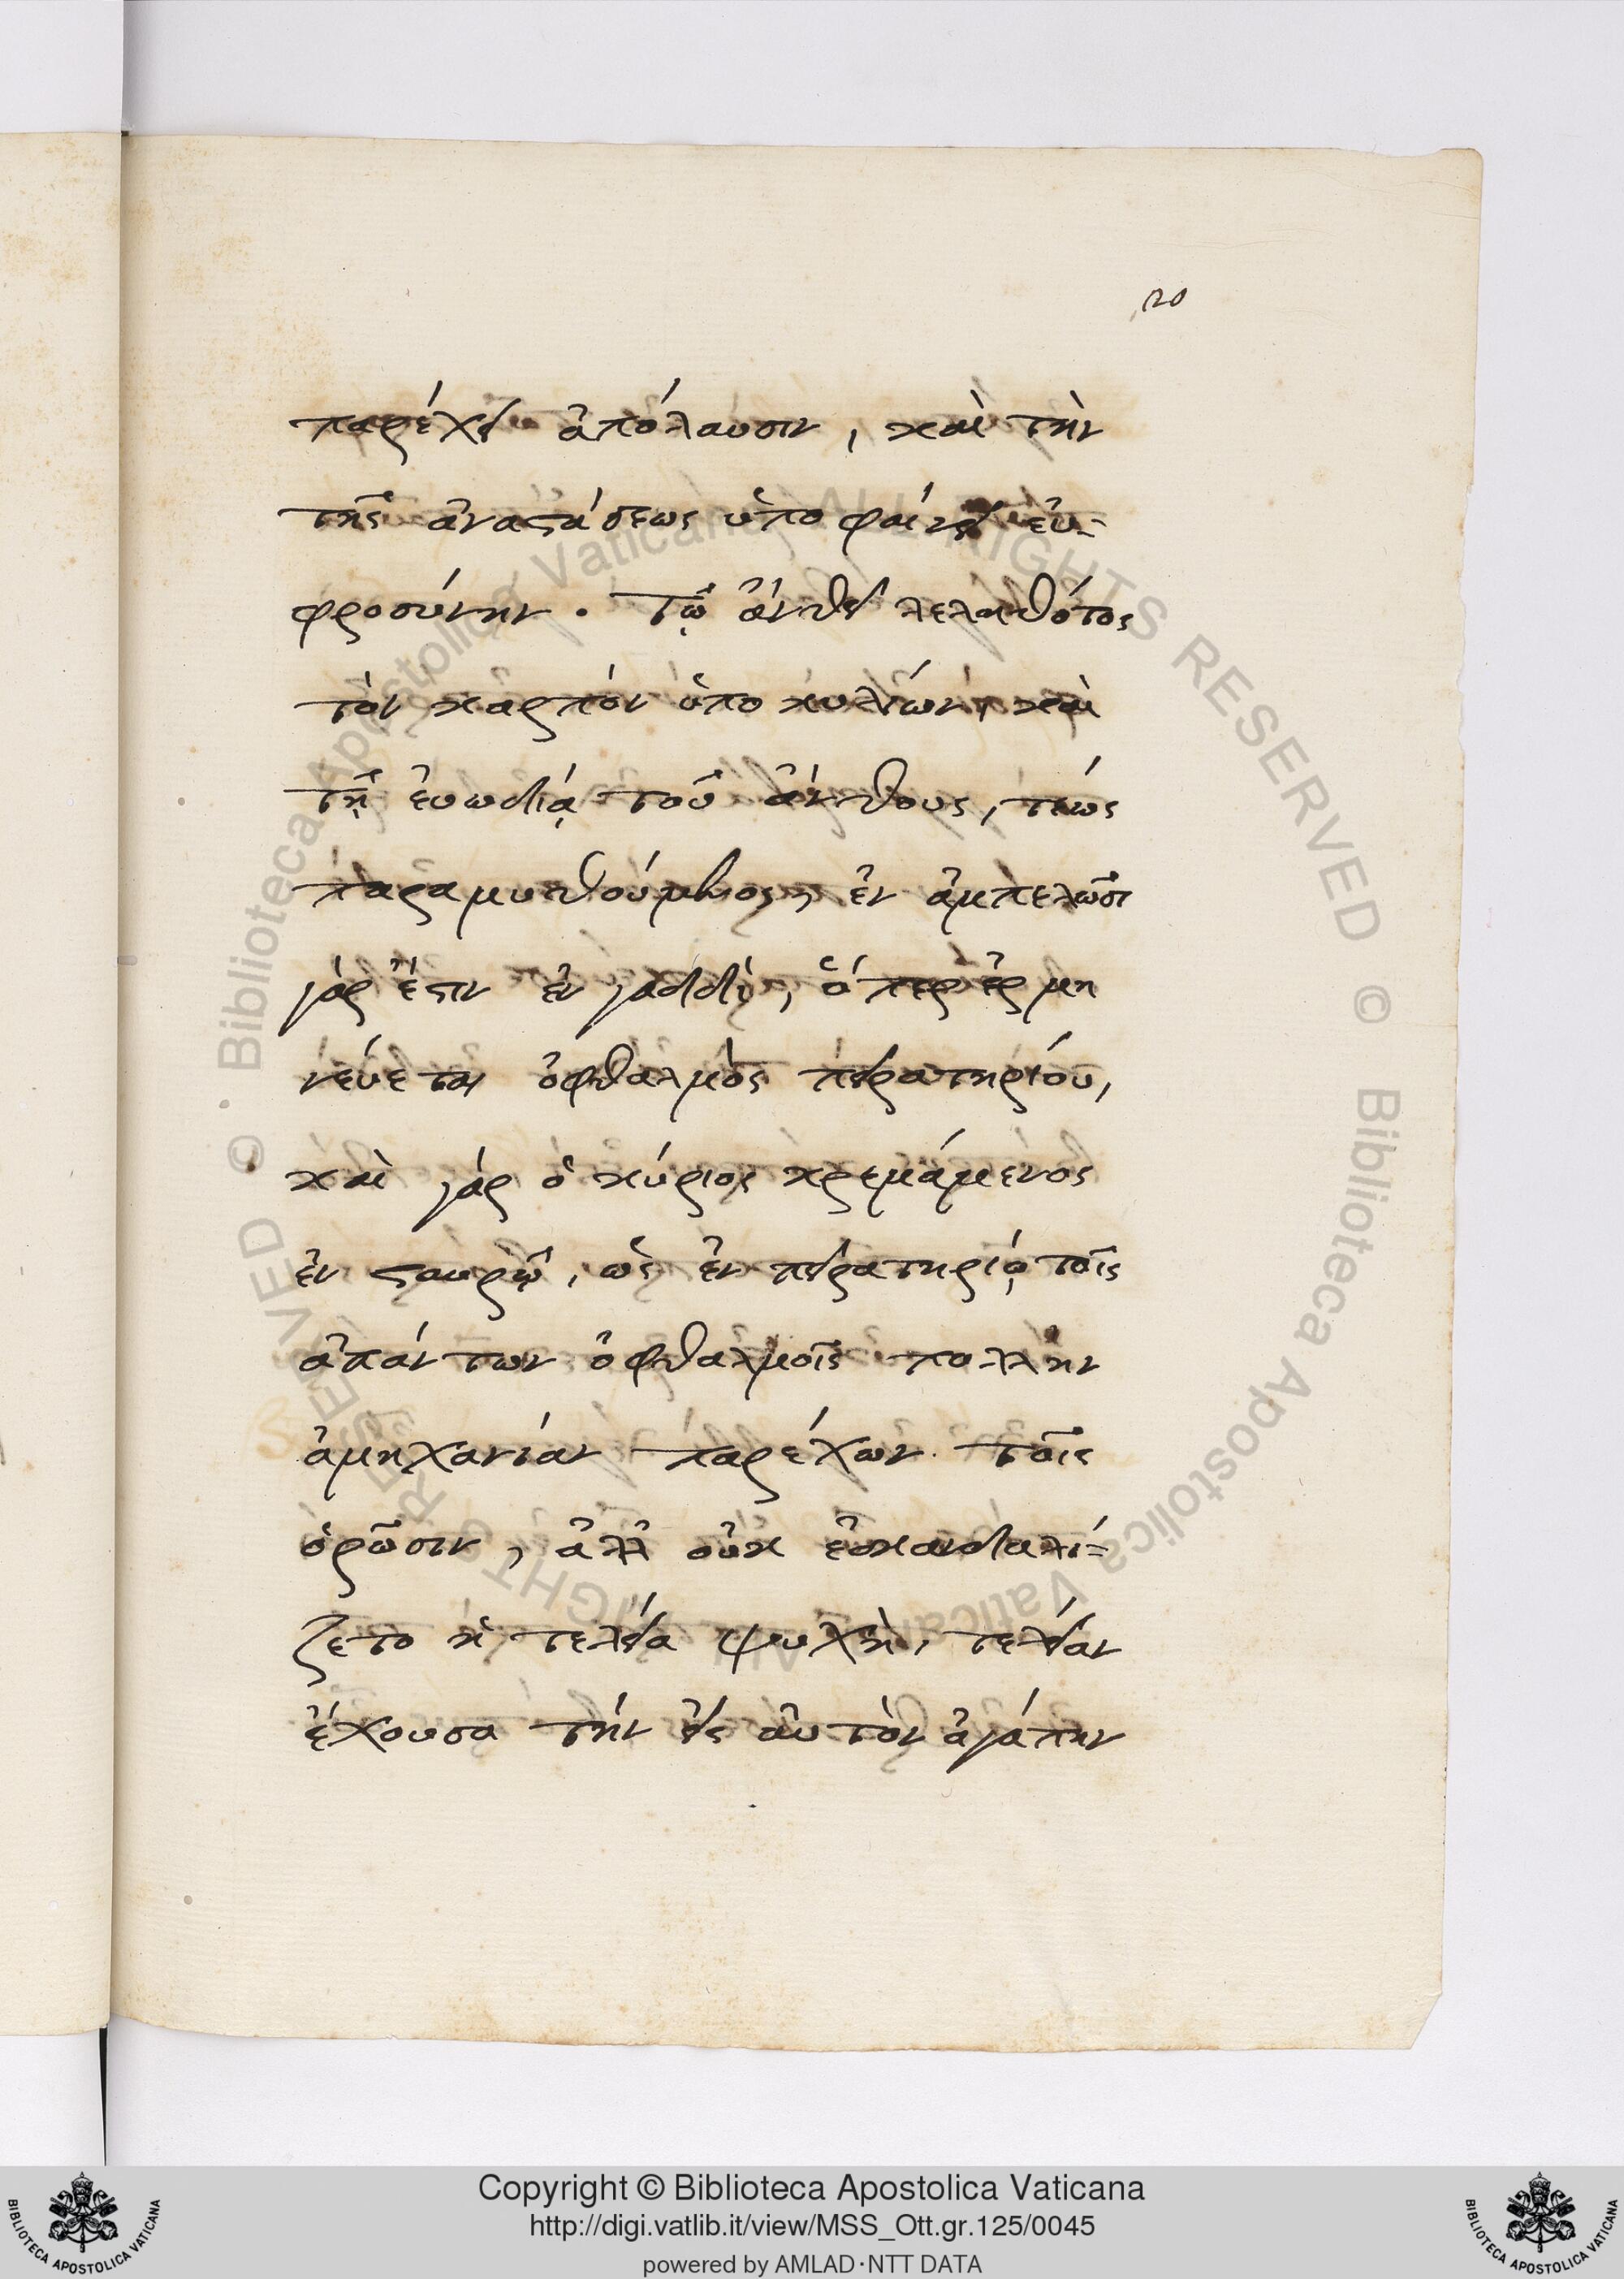 20
παρέχει ἀπόλαυσιν, καὶ τὴν
τῆς ἀναστάσεως ὑποφαίνει εὐ-
φροσύνην. τῷ ἄνθει λεληθότος
τὸν καρπὸν ὑποκυλίων, καὶ
τῇ ἐυωδίᾳ τοῦ ἄνθους, τέως
παραμυθούμενος, ἐν ἀμπελῶσι
γάρ ἐστιν ἐν γαδδὶ, ὅπερ ἑρμη
νέυεται ὀφθαλμὸς πειρατηρίου,
καὶ γὰρ ὁ κύριος κρεμάμενος
ἐν σταυρῷ, ὡς ἐν πειρατηρίῳ τοῖς
ἁπάντων ὀφθαλμοῖς πολλὴν
ἀμηχανίαν παρέχων τοῖς
ὁρῶσιν, ἀλλ' οὐκ ἐσκανδαλί-
ζετο ἡ τελεία ψυχὴ, τελείαν
ἔχουσα τήν εἰς ἀυτὸν ἀγάπην
Copyright © Biblioteca Apostolica Vaticana
http://digi.vatlib.it/view/MSS_Ott.gr.125/0045
powered by AMLAD·NTT DATA
BIBLIOTECA APOSTOLICA VATICANA
BIBLIOTECA APOSTOLICA VATICANA
© Biblioteca Apostolica Vaticana ALL RIGHTS RESERVED
© Biblioteca Apostolica Vaticana ALL RIGHTS RESERVED